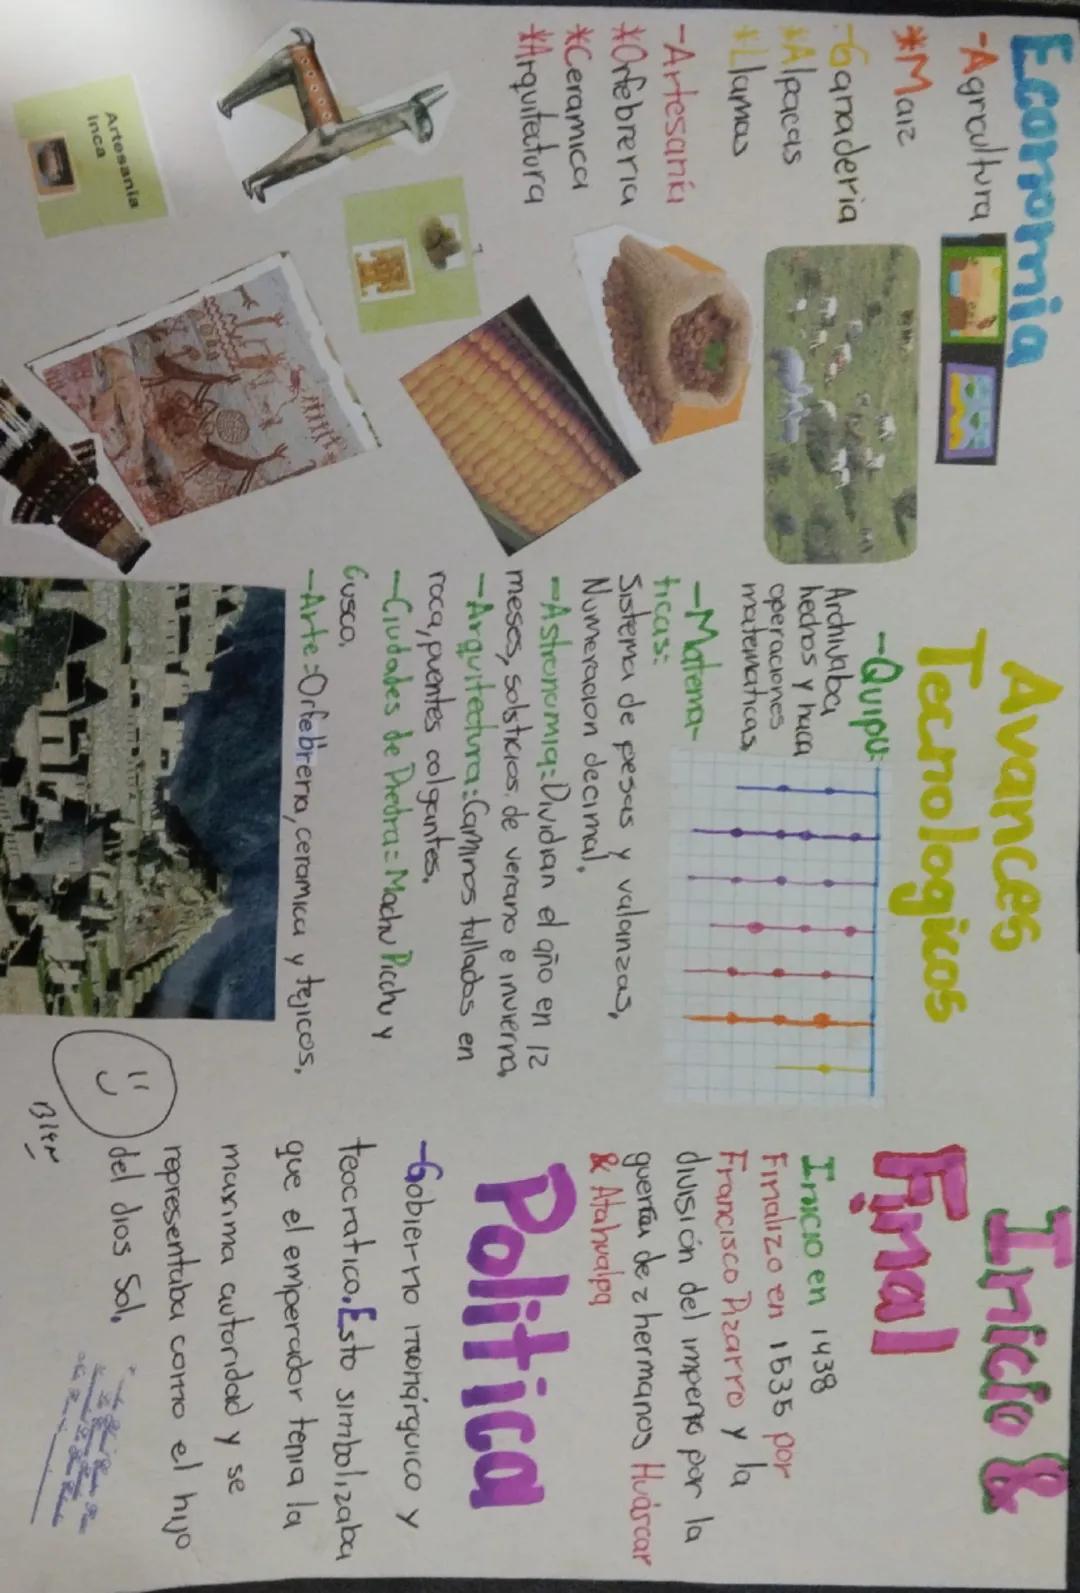 Economia
-Agricultura
*Maiz
-Ganaderia
*Alpacas
*Llamas
-Artesania
*Orfebreria
*Ceramica
*Arquitectura
Artesania
Inca
Avances
Tecnologicos
-Quipu:
Archivaba
hechos y hacia
operaciones
matematicas,
-Matema-
ticas:
Sistema de pesas y valanzas,
Numeracion decimal.
-Astronomia: Dividian el año en 12
meses, solsticios, de verano e invierno,
-Arquitectura: Caminos tallados en
roca, puentes colgantes.
-Ciudades de Piedra: Machu Picchu y
Cusco,
-Arte: Orfebreria, ceramica y tejicos,
Inicio &
Final
Inicio en 1438
Finalizo en 1535 por
Francisco Pizarro y la
división del imperio por la
guerra de 2 hermanos Huáscar
& Atahualpa
Politica
-Gobierno monárquico y
teocratico. Esto simbolizaba
que el emperador tenia la
maxima autoridad y se
representaba como el hijo
del dios Sol.